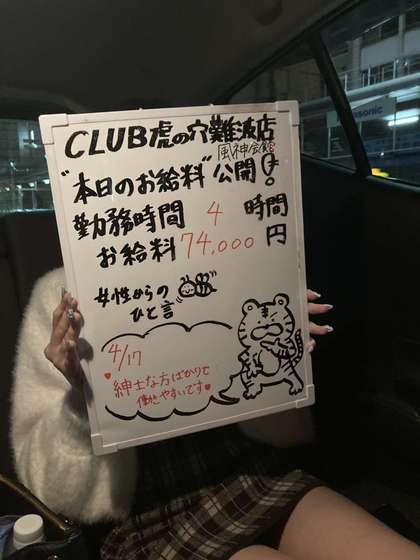 CLUB虎の穴難波店
風神会館
"本日のお給料"公開!
勤務時間 4 時間
お給料74,000円
女性からの
ひと言
4/17
♥紳士な方ばかりで
働きやすいです♥
Panasonic